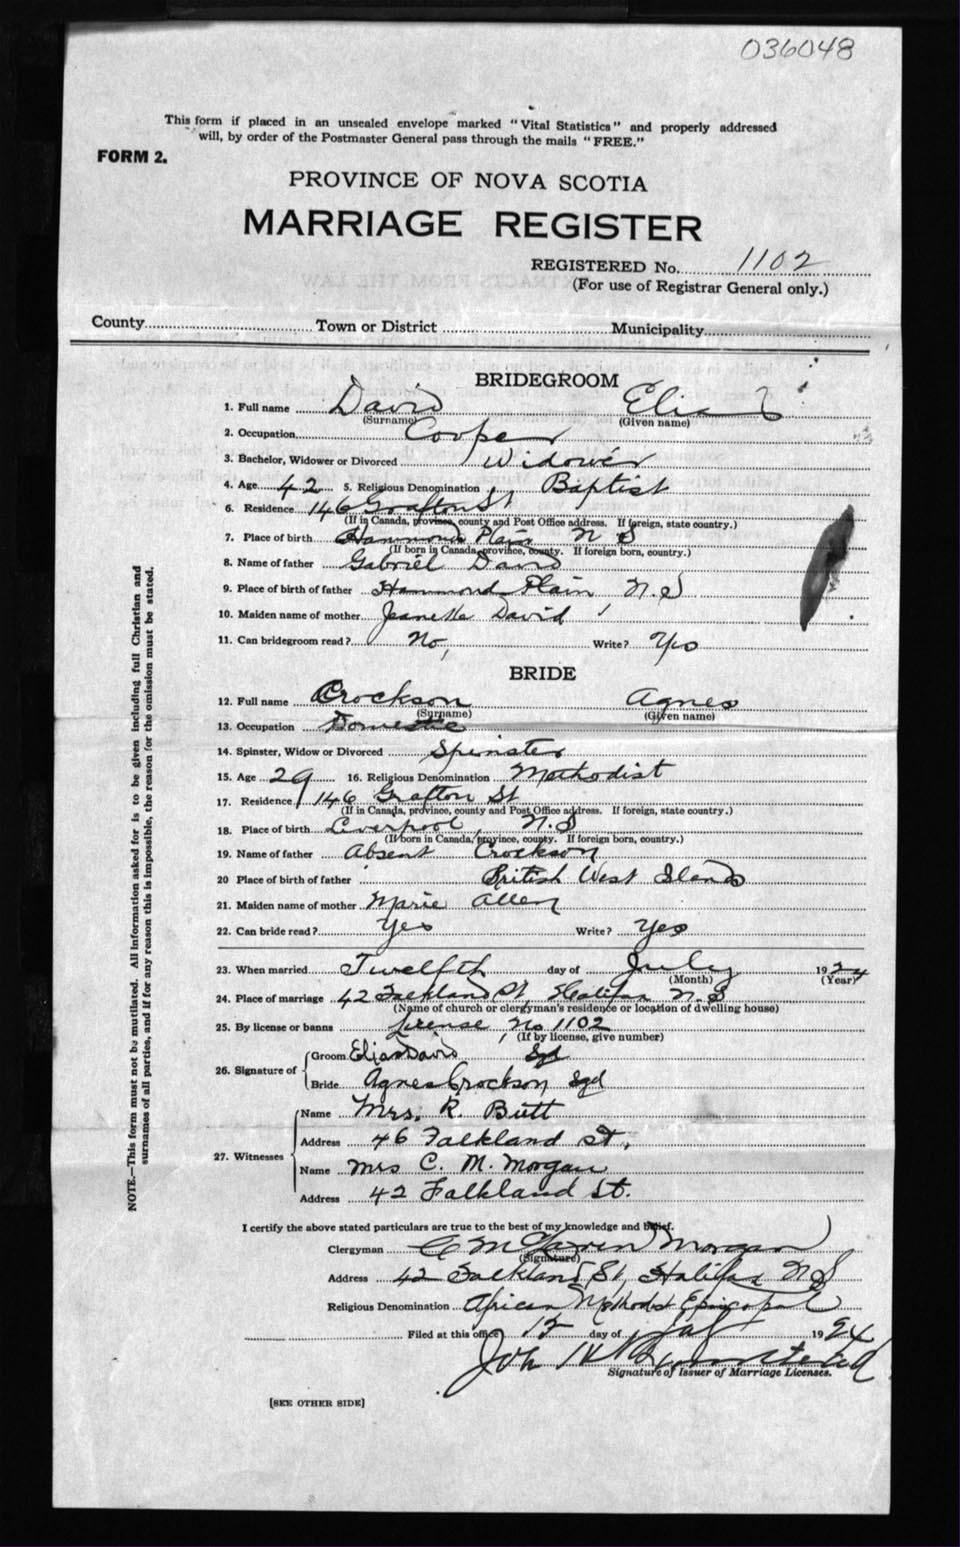 036048
This form if placed in an unsealed envelope marked "Vital Statistics" and properly addressed
will, by order of the Postmaster General pass through the mails "FREE."
FORM 2.
PROVINCE OF NOVA SCOTIA
MARRIAGE REGISTER
REGISTERED No. 1102
(For use of Registrar General only.)
County Town or District Municipality
BRIDEGROOM
1. Full name David Elias
(Surname) (Given name)
2. Occupation Cooper
3. Bachelor, Widower or Divorced Widower
4. Age 42 5. Religious Denomination Baptist
6. Residence 146 Grafton St
(If in Canada, province, county and Post Office address. If foreign, state country.)
7. Place of birth Hammond Plain N S
(If born in Canada, province, county. If foreign born, country.)
8. Name of father Gabriel David
9. Place of birth of father Hammond Plain N.S
10. Maiden name of mother Jeanette David
11. Can bridegroom read? No, Write? Yes
BRIDE
12. Full name Crockson Agnes
(Surname) (Given name)
13. Occupation Domestic
14. Spinster, Widow or Divorced Spinster
15. Age 29 16. Religious Denomination Methodist
17. Residence 146 Grafton St
(If in Canada, province, county and Post Office address. If foreign, state country.)
18. Place of birth Liverpool, N.S
(If born in Canada, province, county. If foreign born, country.)
19. Name of father Absent Crockson
20 Place of birth of father British West Islands
21. Maiden name of mother Marie Allen
22. Can bride read? Yes Write? Yes
23. When married Twelfth day of July 1924
(Month) (Year)
24. Place of marriage 42 Falkland St, Halifax N.S
(Name of church or clergyman's residence or location of dwelling house)
25. By license or banns License No 1102
(If by license, give number)
26. Signature of
Groom Elias David Sgd
Bride Agnes Crockson Sgd
27. Witnesses
Name Mrs. R. Butt
Address 46 Falkland St,
Name Mrs C. M. Morgan
Address 42 Falkland St.
I certify the above stated particulars are true to the best of my knowledge and belief.
Clergyman Morgan
(Signature)
Address 42 Falkland St, Halifax N S
Religious Denomination African Methodist Episcopal
Filed at this office 15 day of 1924
Signature of Issuer of Marriage Licenses.
[SEE OTHER SIDE]
NOTE.—This form must not be mutilated. All information asked for is to be given including full Christian and
surnames of all parties, and if for any reason this is impossible, the reason for the omission must be stated.